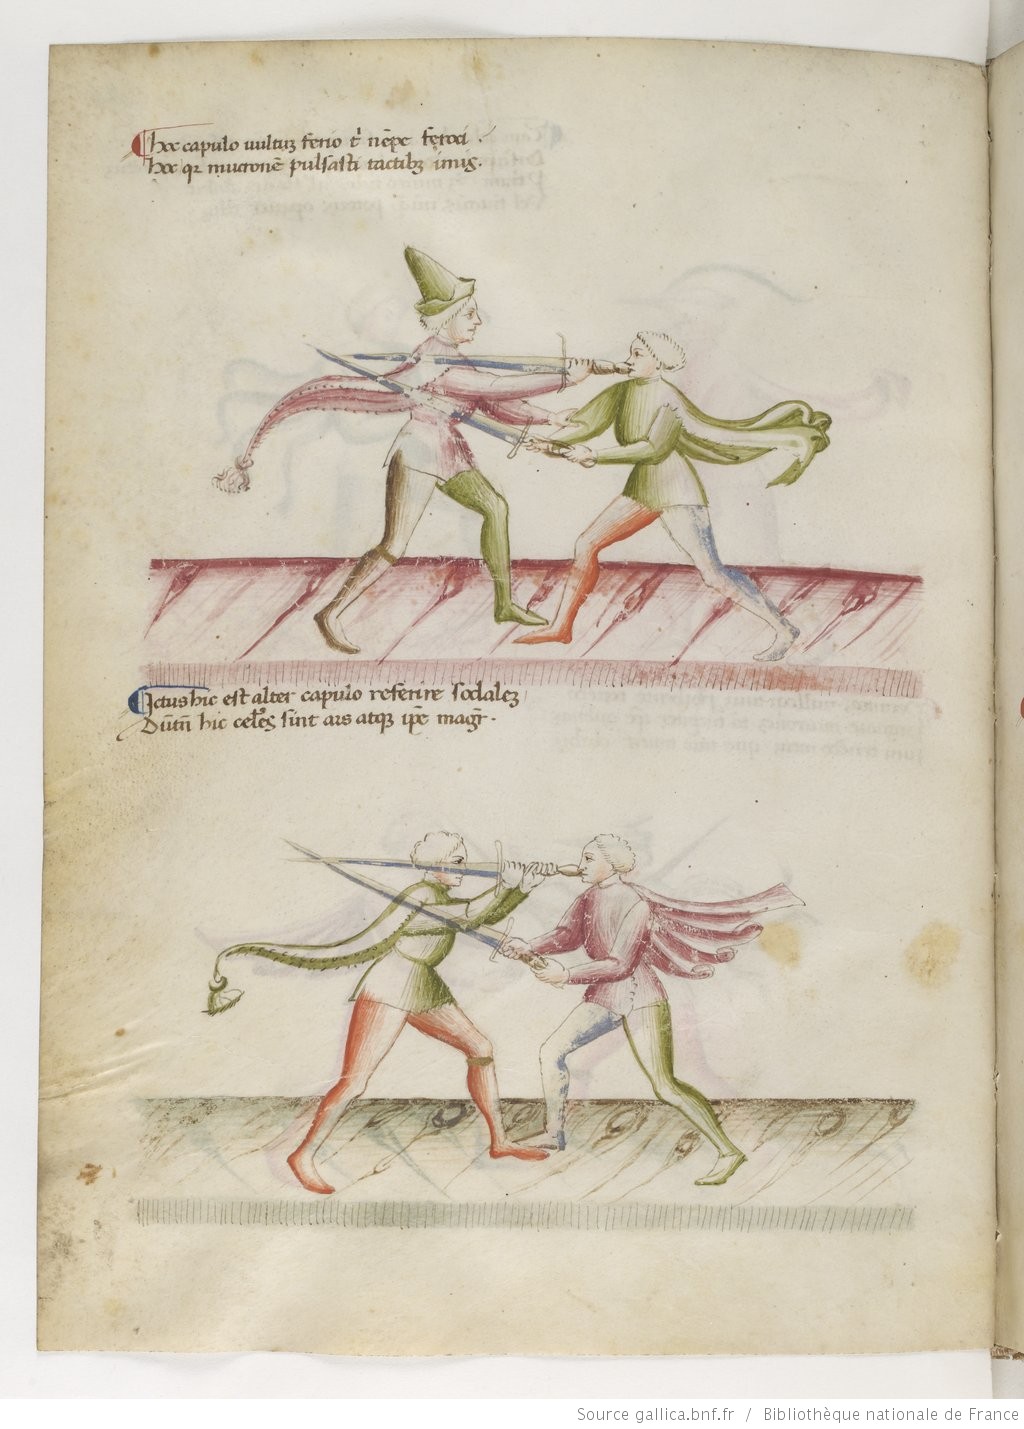 hoc capulo uultuʒ ferio t͛ nēpe feroci .
hoc qꝛ mucronē pulsasti tactibꝫ imis .
Ictus hic est alter capulo referire sodaleʒ
hic celeres sint ars atqꝫ ip̄e magr̄ .
Source gallica.bnf.fr / Bibliothèque nationale de France